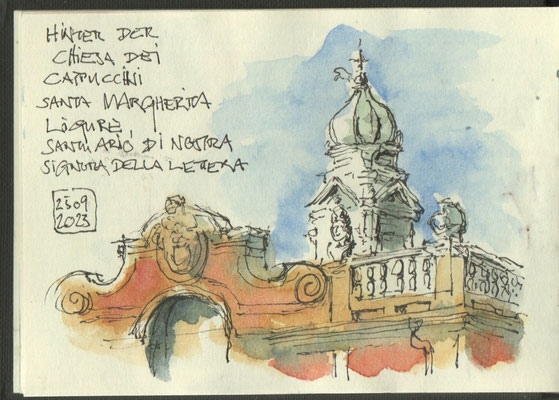 HINTER DER
CHIESA DEI
CAPPUCCINI
SANTA MARGHERITA
LIGURE,
SANTUARIO DI NOSTRA
SIGNORA DELLA LETTERA
2509
2023